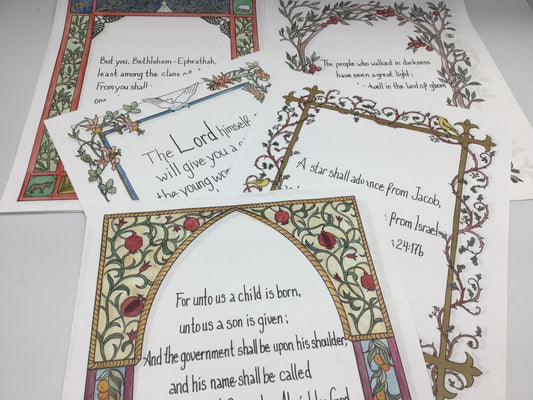 But you, Bethlehem-Ephrathah,
least among the clans
From you shall
The people who walked in darkness
have seen a great light;
dwell in the land of gloom
The Lord himself
will give you a
the young
A star shall advance from Jacob,
from Israel
24:17b
For unto us a child is born,
unto us a son is given;
And the government shall be upon his shoulder,
and his name shall be called